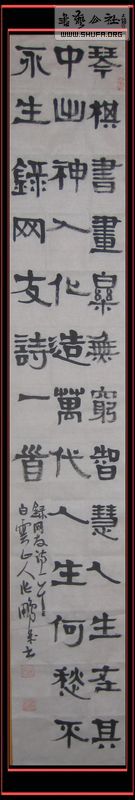 书艺公社
WWW.SHUFA.ORG
琴棋書畫樂無窮智慧人生在其
中出神入化造萬代人生何愁不
永生錄网友詩一首
錄网友诗一首
白雲山人